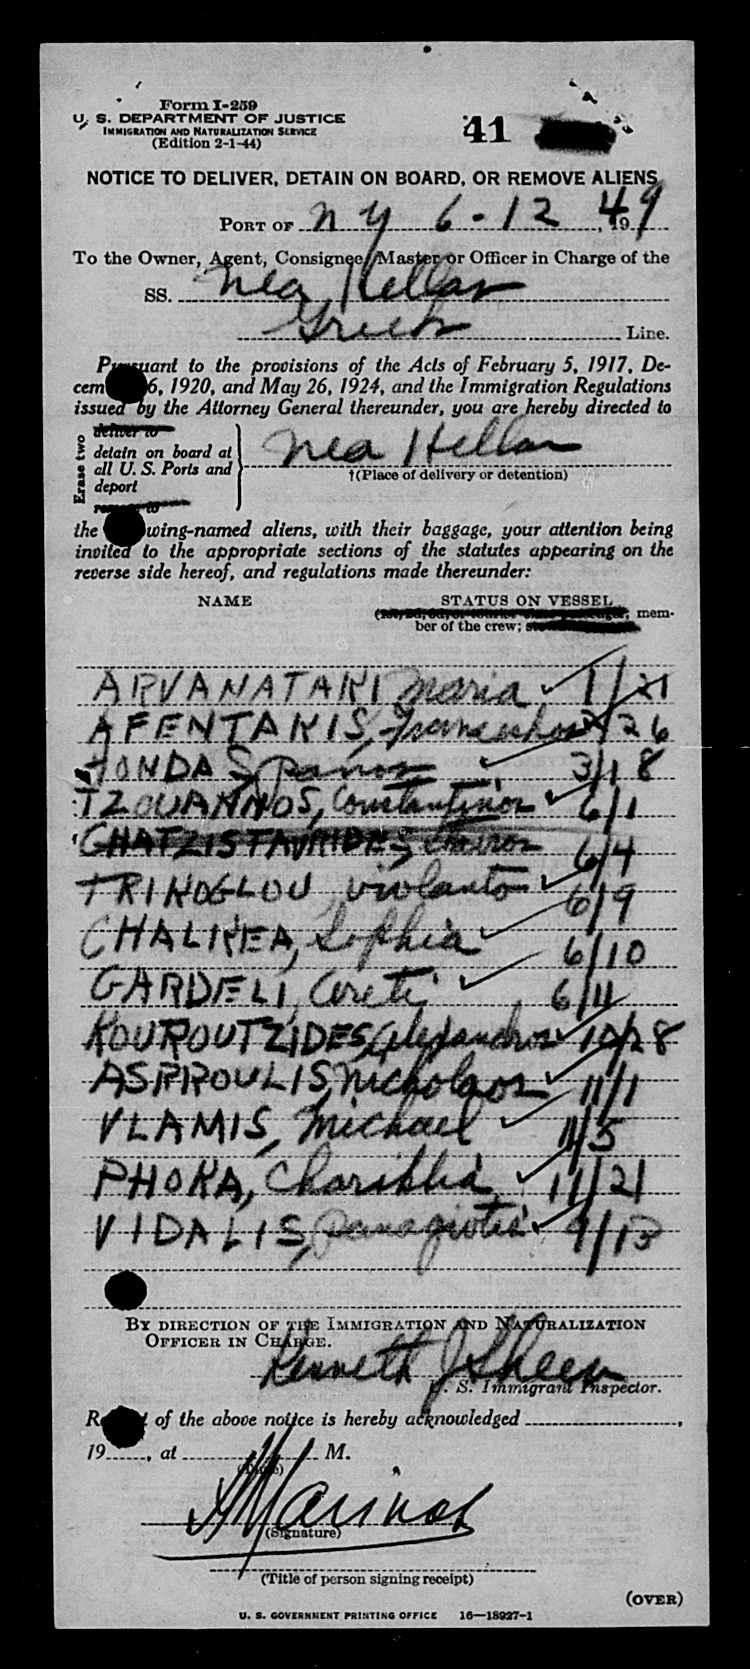 Form I-259
U. S. DEPARTMENT OF JUSTICE
IMMIGRATION AND NATURALIZATION SERVICE
(Edition 2-1-44)
41
NOTICE TO DELIVER, DETAIN ON BOARD, OR REMOVE ALIENS
PORT OF N Y 6-12, 1949
To the Owner, Agent, Consignee, Master or Officer in Charge of the
SS. Nea Hellas
Greek Line.
Pursuant to the provisions of the Acts of February 5, 1917, De-
cem 6, 1920, and May 26, 1924, and the Immigration Regulations
issued by the Attorney General thereunder, you are hereby directed to
Erase two
deliver to
detain on board at
all U. S. Ports and
deport
Nea Hellas
†(Place of delivery or detention)
the wing-named aliens, with their baggage, your attention being
invited to the appropriate sections of the statutes appearing on the
reverse side hereof, and regulations made thereunder:
NAME STATUS ON VESSEL
mem-
ber of the crew;
ARVANATAKI Maria 1/21
AFENTAKIS, 26
Panos 3/18
TZOUANNOS, Constantinos 6/1
CHATZISTAVRIDES, 6/4
TRINOGLOU, Violanto 6/9
CHALKEA, Sophia 6/10
GARDELI, 6/11
KOUROUTZIDES, Alexandros 10/28
ASPROULIS, Nicholaos 11/1
VLAMIS, Michael 11/5
PHOKA, 11/21
VIDALIS, Panagiotis 9/13
BY DIRECTION OF THE IMMIGRATION AND NATURALIZATION
OFFICER IN CHARGE.
Kenneth J
U. S. Immigrant Inspector.
of the above notice is hereby acknowledged
19 , at M.
Marinos
(Signature)
(Title of person signing receipt)
(OVER)
U. S. GOVERNMENT PRINTING OFFICE 16—18927-1